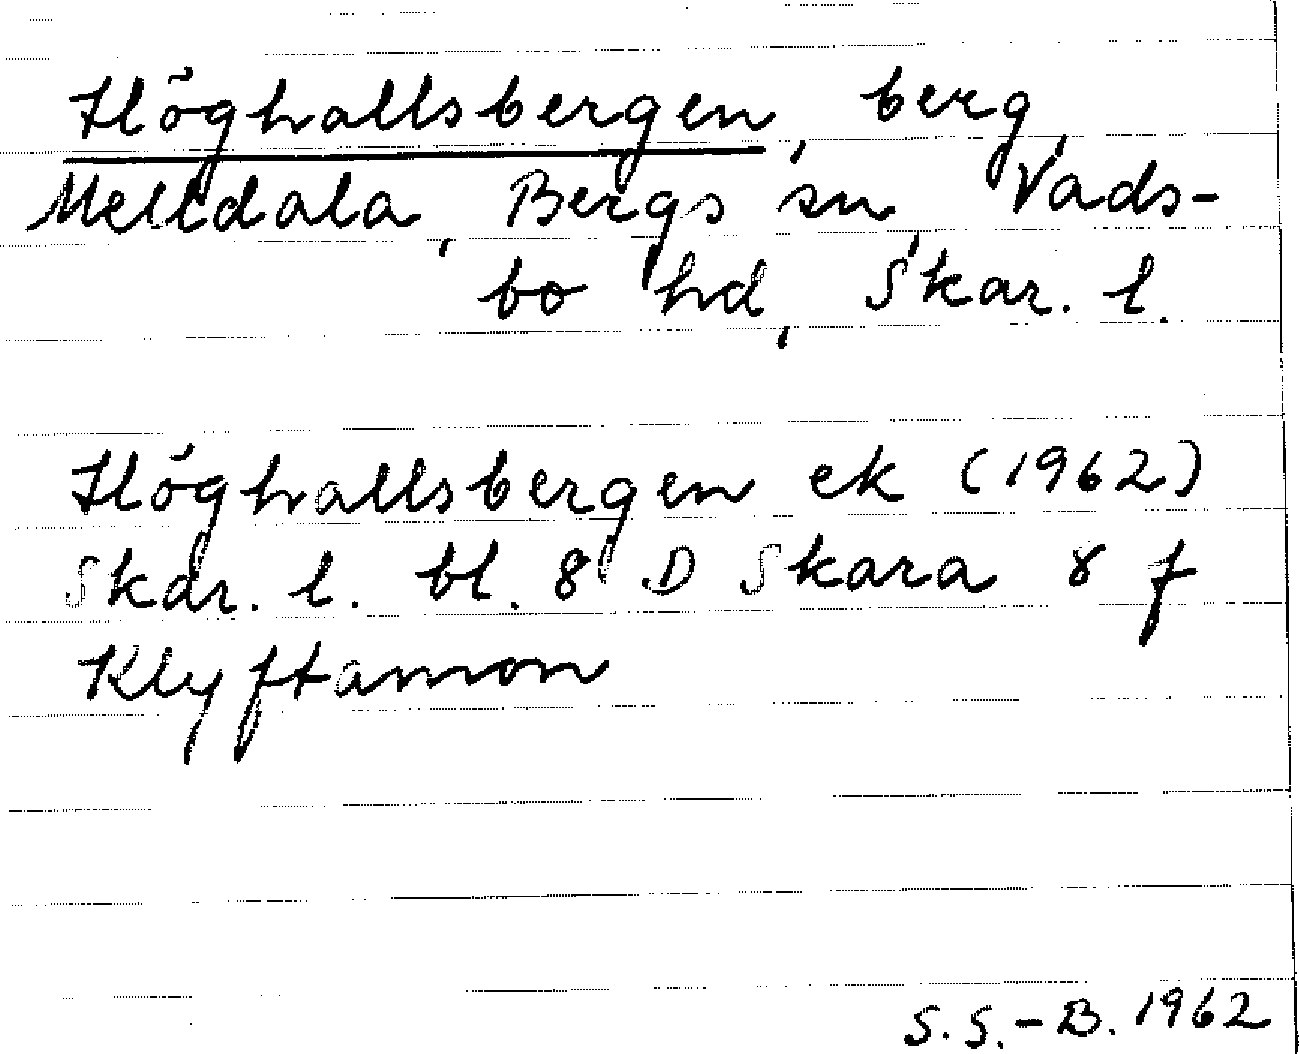 Höghallsbergen, berg,
Melldala, Bergs sn, Vads-
bo hd, Skar. l.
Höghallsbergen ek (1962)
Skar. l. bl. 8 D Skara 8 f
Klyftamon
S. S.-B. 1962